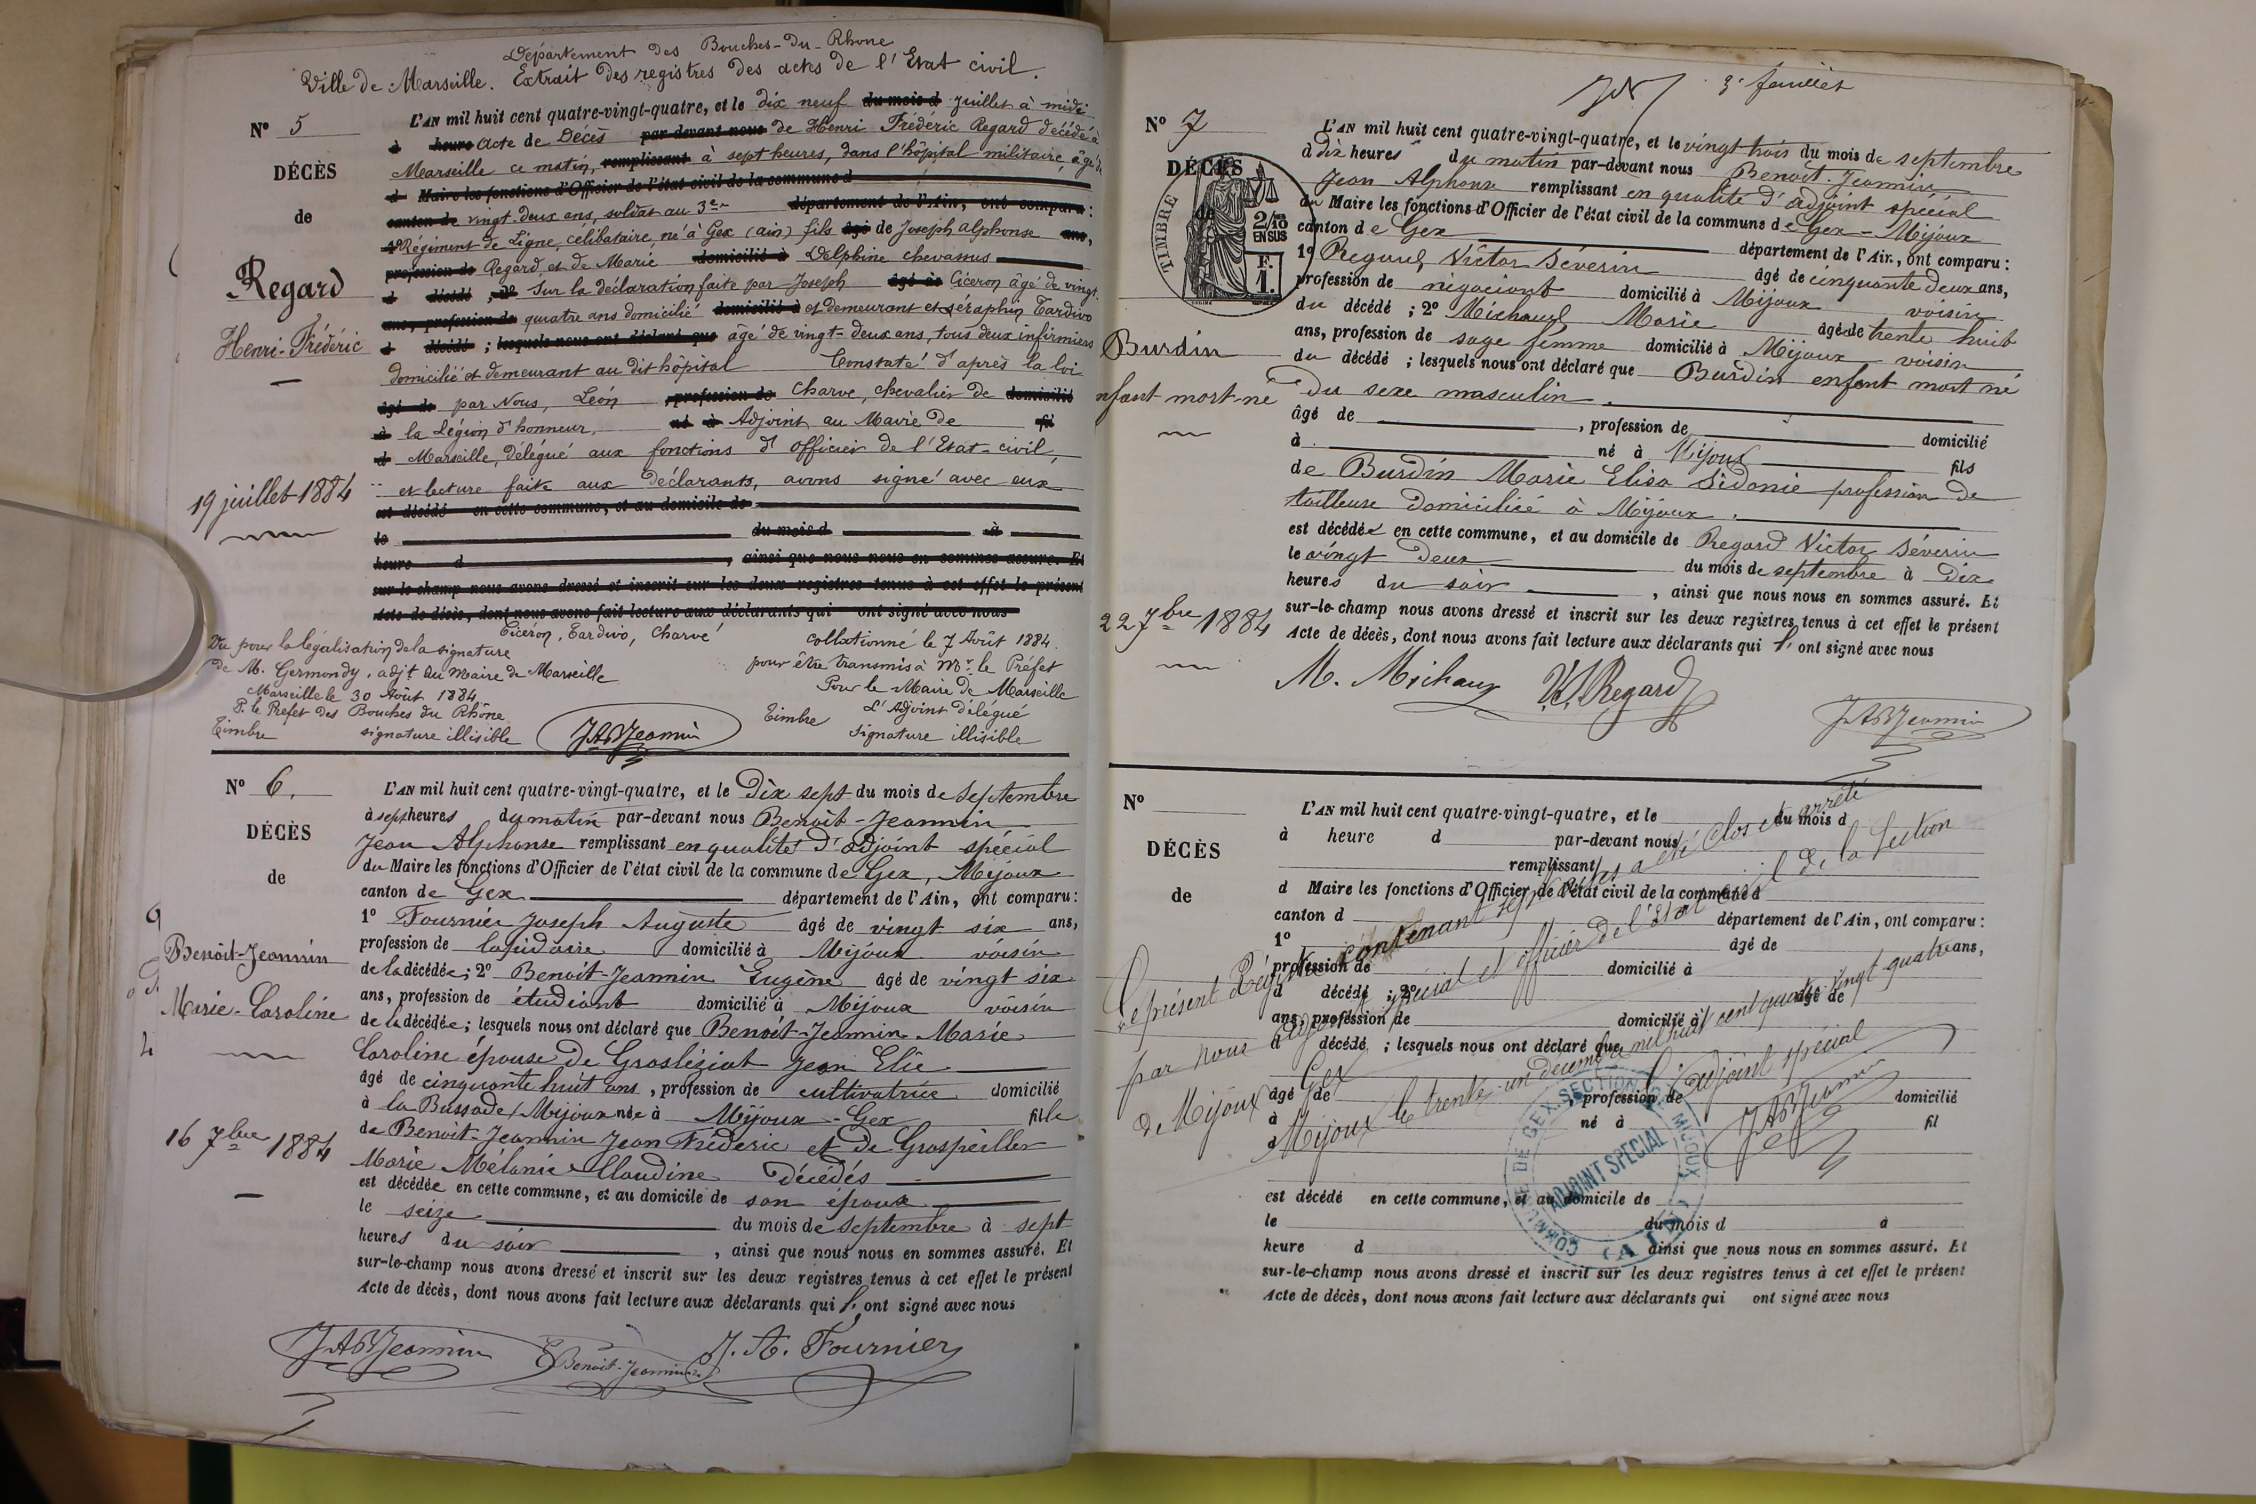 Département des Bouches-du-Rhone
Ville de Marseille. Extrait des registres des actes de l'Etat civil.
N° 5
DÉCÈS
de
Regard
Henri-Frédéric
19 juillet 1884
L'AN mil huit cent quatre-vingt-quatre, et le dix neuf du mois d juillet à midi
à heure acte de Décès par-devant nous de Henri Frédéric Regard décédé à
Marseille ce matin, remplissant à sept heures, dans l'hôpital militaire, âgé de
d Maire les fonctions d'Officier de l'état civil de la commune d
canton de vingt-deux ans, soldat au 3e département de l'Ain, ont comparu :
1° Régiment de Ligne, célibataire, né à Gex (ain) fils âgé de Joseph alphonse ans,
profession de Regard, et de Marie domicilié à Delphine chevassus
d décédé ; 2° Sur la déclaration faite par Joseph âgé de Ciceron âgé de vingt-
ans, profession de quatre ans domicilié domicilié à et demeurant et séraphin Tardivo
d décédé ; lesquels nous ont déclaré que âgé de vingt-deux ans, tous deux infirmiers
domicilié et demeurant au dit hôpital Constaté d'après la loi
âgé de par Nous, Léon profession de Charve, chevalier de domicilié
à la Légion d'honneur, né à Adjoint au Maire de fil
d Marseille, délégué aux fonctions d'officier de l'Etat-civil,
et lecture faite aux déclarants, avons signé avec eux
est décédé en cette commune, et au domicile de
le du mois d à
heure d , ainsi que nous nous en sommes assuré. Et
sur-le-champ nous avons dressé et inscrit sur les deux registres tenus à cet effet le présent
Acte de décès, dont nous avons fait lecture aux déclarants qui ont signé avec nous
Cicéron, Tardivo, Charvé
Vu pour la légalisation de la signature
de M. Germondy, adjt au maire de Marseille
Marseille le 30 Août 1884
P. le Prefet des Bouches du Rhône
Timbre signature illisible
JABJeannin
collationné le 7 Août 1884
pour être transmis à Mr le Préfet
Pour le Maire de Marseille
Timbre L'Adjoint délégué
Signature illisible
N° 6.
DÉCÈS
de
Benoit-Jeannin
Marie-Caroline
16 7bre 1884
L'AN mil huit cent quatre-vingt-quatre, et le Dix sept du mois de Septembre
à sept heures du matin par-devant nous Benoît-Jeannin
Jean Alphonse remplissant en qualité d'adjoint spécial
du Maire les fonctions d'Officier de l'état civil de la commune de Gex, Mijoux
canton de Gex département de l'Ain, ont comparu :
1° Fournier Joseph Auguste âgé de vingt six ans,
profession de lapidaire domicilié à Mijoux voisin
de la décédée ; 2° Benoit-Jeannin Eugène âgé de vingt six
ans, profession de étudiant domicilié à Mijoux voisin
de la décédée ; lesquels nous ont déclaré que Benoît-Jeannin Marie
Caroline épouse de Grosléziat Jean Elie
âgé de cinquante huit ans , profession de cultivatrice domicilié
à la Bassade, Mijoux née à Mijoux-Gex fille
de Benoit-Jeannin Jean Frédéric et de Grospeiller
Marie Mélanie Claudine décédés
est décédée en cette commune, et au domicile de son époux
le seize du mois de septembre à sept
heures du soir , ainsi que nous nous en sommes assuré. Et
sur-le-champ nous avons dressé et inscrit sur les deux registres tenus à cet effet le présent
Acte de décès, dont nous avons fait lecture aux déclarants qui l' ont signé avec nous
JABJeannin E Benoit-Jeannin J. A. Fournier
3e feuillet
N° 7
DÉCÈS
de
TIMBRE
2/10 EN SUS
F. 1.
Burdin
enfant mort-né
22 7bre 1884
L'AN mil huit cent quatre-vingt-quatre, et le vingt trois du mois de septembre
à dix heures du matin par-devant nous Benoit-Jeannin
Jean Alphonse remplissant en qualité d'adjoint spécial
du Maire les fonctions d'Officier de l'état civil de la commune de Gex-Mijoux
canton de Gex département de l'Ain, ont comparu :
1° Regard Victor Séverin âgé de cinquante deux ans,
profession de négociant domicilié à Mijoux voisin
du décédé ; 2° Michaud Marie âgé de trente huit
ans, profession de sage femme domicilié à Mijoux voisin
du décédé ; lesquels nous ont déclaré que Burdin enfant mort né
du sexe masculin.
âgé de , profession de domicilié
à né à Mijoux fils
de Burdin Marie Elisa Sidonie profession de
tailleuse domiciliée à Mijoux.
est décédée en cette commune, et au domicile de Regard Victor Séverin
le vingt deux du mois de septembre à dix
heures du soir , ainsi que nous nous en sommes assuré. Et
sur-le-champ nous avons dressé et inscrit sur les deux registres tenus à cet effet le présent
Acte de décès, dont nous avons fait lecture aux déclarants qui l' ont signé avec nous
M. Michaux V.S. Regard JABJeannin
N°
DÉCÈS
de
L'AN mil huit cent quatre-vingt-quatre, et le du mois d
à heure d par-devant nous
remplissant
d Maire les fonctions d'Officier de l'état civil de la commune d
canton d département de l'Ain, ont comparu :
1° âgé de ans,
profession de domicilié à
d décédé ; 2° âgé de
ans, profession de domicilié à
d décédé ; lesquels nous ont déclaré que
âgé de , profession de domicilié
à né à fil
d
est décédé en cette commune, et au domicile de
le du mois d à
heure d ainsi que nous nous en sommes assuré. Et
sur-le-champ nous avons dressé et inscrit sur les deux registres tenus à cet effet le présent
Acte de décès, dont nous avons fait lecture aux déclarants qui ont signé avec nous
Le présent Régistre contenant sept actes a été clos et arrêté
par nous adjoint spécial et officier de l'Etat civil de la Section
de Mijoux Gex
Mijoux le trente-un décembre mil huit cent quatre-vingt quatre
L'adjoint spécial
JABJeannin
COMMUNE DE GEX. SECTION DE MIJOUX
ADJOINT SPÉCIAL
(AIN)